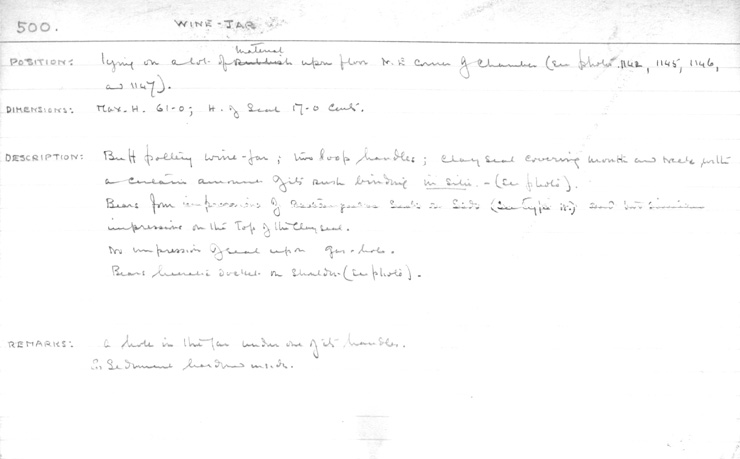 500. WINE-JAR
POSITION: lying on a lot of material rubbish upon floor N.E corner of Chamber (See photo 1142, 1145, 1146,
and 1147).
DIMENSIONS: Max. H. 61-0; H. of Seal 17-0 Cents.
DESCRIPTION: Buff pottery wine-jar; two loop handles; clay seal covering mouth and neck with
a certain amount of its rush binding in situ. - (See photo).
Bears four impressions of Seals on Side (See type) and two similar
impressions on the Top of the Clay seal.
No impression of seal upon gas-hole.
Bears hieratic docket on Shoulder (See photo).
REMARKS: a hole in the Jar under one of its handles.
Sediment hardened inside.